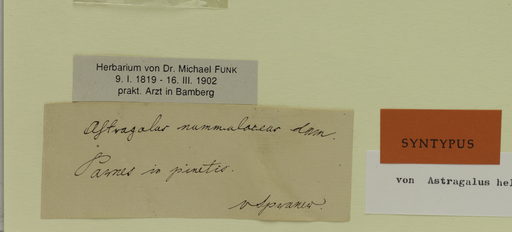 Herbarium von Dr. Michael FUNK
9. I. 1819 - 16. III. 1902
prakt. Arzt in Bamberg
Astragalus nummularius
Parnes in pinetis.
SYNTYPUS
von Astragalus hel